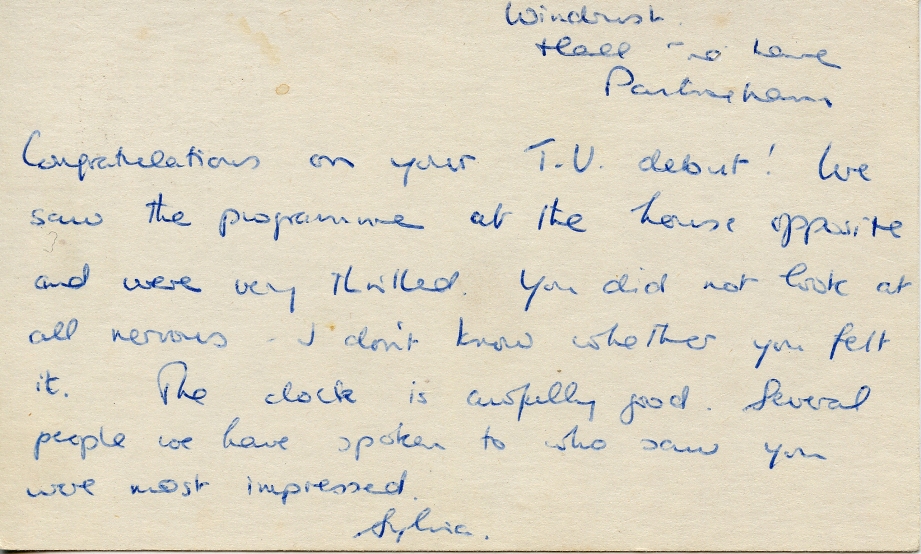 Windrush
Hall
Congratulations on your T.V. debut! We
saw the programme at the house opposite
and were very thrilled. You did not look at
all nervous - I don't know whether you felt
it. The clock is awfully good. Several
people we have spoken to who saw you
were most impressed.
Sylvia.